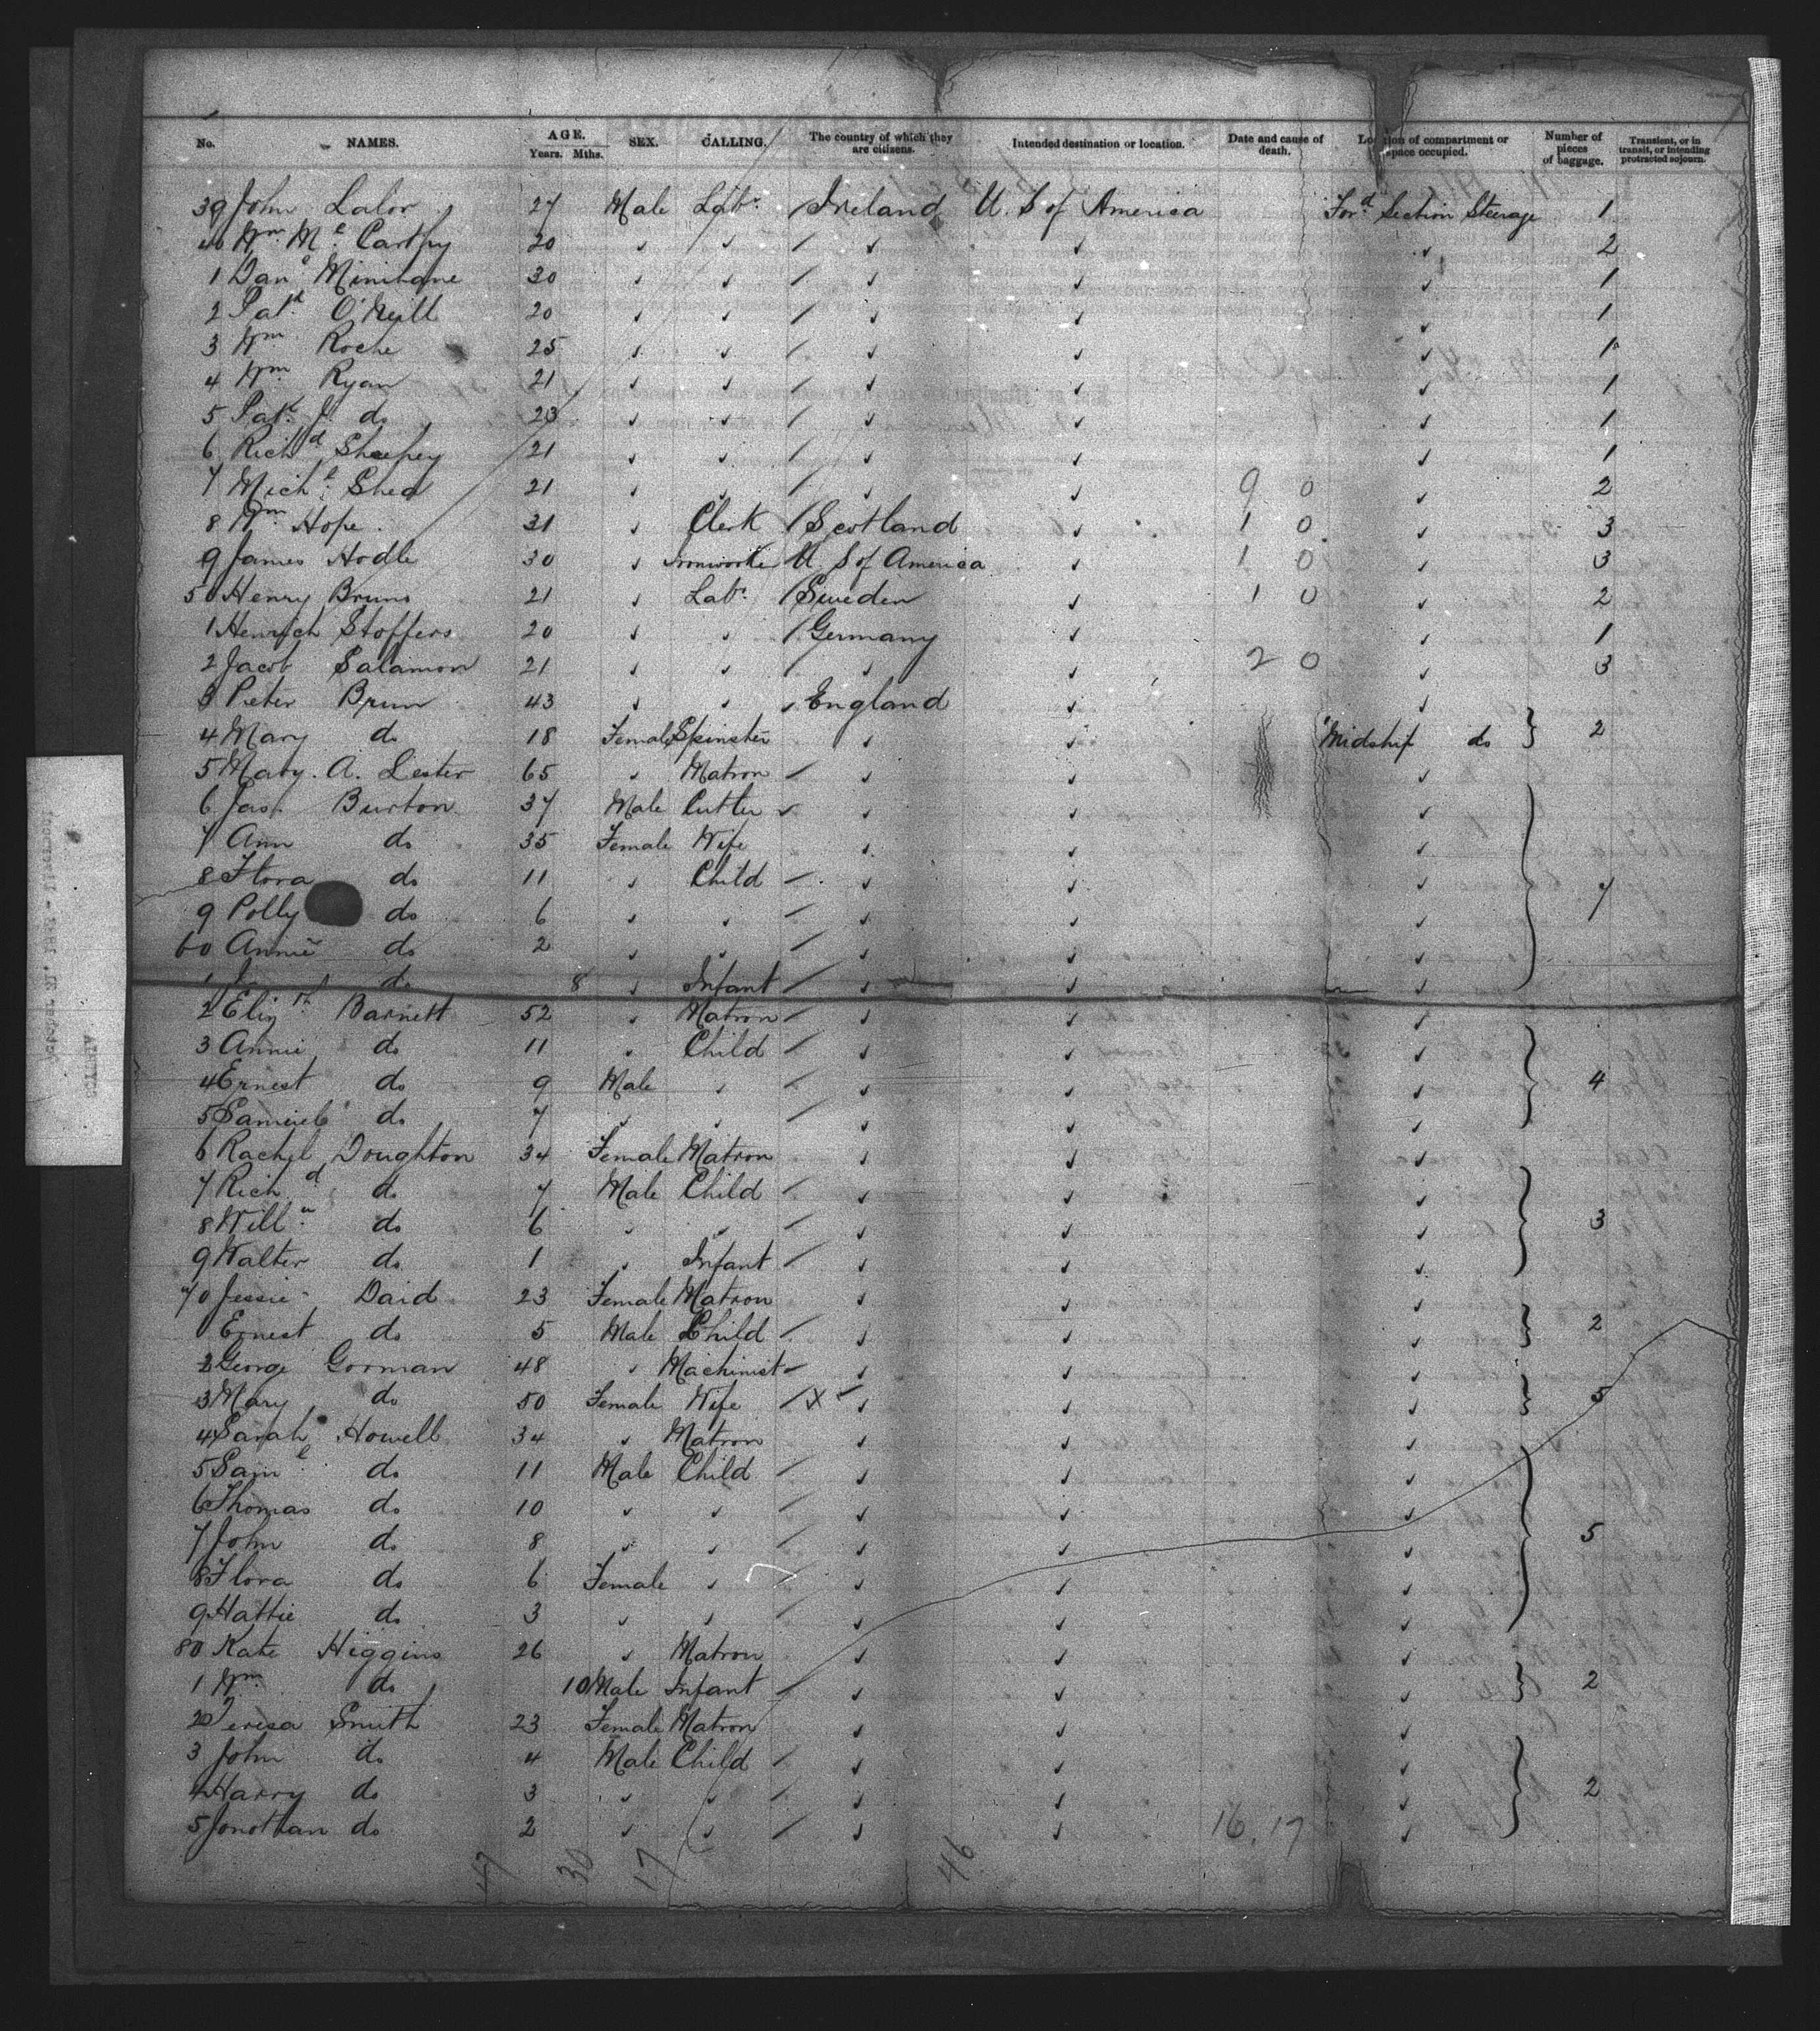 No. NAMES. AGE. Years. Mths. SEX. CALLING. The country of which they are citizens. Intended destination or location. Date and cause of death. Location of compartment or space occupied. Number of pieces of baggage. Transient, or in transit, or intending protracted sojourn.
39 John Lalor 27 Male Labr. / Ireland U. S of America Ford. Section Steerage 1
40 Wm. Mc. Carthy 20 ✓ ✓ / ✓ ✓ ✓ 2
1 Danl. Minihane 30 ✓ ✓ / ✓ ✓ ✓ 1
2 Patk. O'Neill 20 ✓ ✓ / ✓ ✓ ✓ 1
3 Wm. Roche 25 ✓ ✓ / ✓ ✓ ✓ 1
4 Wm. Ryan 21 ✓ ✓ / ✓ ✓ ✓ 1
5 Patk. J. do 23 ✓ ✓ / ✓ ✓ ✓ 1
6 Richd. Sheehey 21 ✓ ✓ / ✓ ✓ ✓ 1
7 Michl. Shea 21 ✓ ✓ / ✓ ✓ 9 0 ✓ 2
8 Wm. Hope 31 ✓ Clerk / Scotland ✓ 1 0 ✓ 3
9 James Hodle 30 ✓ Ironworker U. S of America ✓ 1 0 ✓ 3
50 Henry Bruns 21 ✓ Labr. / Sweden ✓ 1 0 ✓ 2
1 Henrich Stoffers 20 ✓ ✓ / Germany ✓ ✓ 1
2 Jacob Salamon 21 ✓ ✓ / ✓ ✓ 2 0 ✓ 3
3 Peter Brun 43 ✓ ✓ ✓ England ✓ ✓
4 Mary do 18 Female Spinster ✓ ✓ Midship do } 2
5 Mary. A. Lester 65 ✓ Matron / ✓ ✓ ✓
6 Jas. Burton 37 Male Cutler ✓ ✓ ✓ ✓
7 Ann do 35 Female Wife ✓ ✓ ✓
8 Flora do 11 ✓ Child / ✓ ✓ ✓ } 7
9 Polly do 6 ✓ ✓ / ✓ ✓ ✓
60 Annie do 2 ✓ ✓ / ✓ ✓ ✓
1 do 8 ✓ Infant / ✓ ✓ ✓
2 Elizth. Barnett 52 ✓ Matron / ✓ ✓ ✓
3 Annie do 11 ✓ Child / ✓ ✓ ✓
4 Ernest do 9 Male ✓ / ✓ ✓ ✓ } 4
5 Samuel do 7 ✓ ✓ / ✓ ✓ ✓
6 Rachel Doughton 34 Female Matron ✓ ✓ ✓
7 Richd. do 7 Male Child / ✓ ✓ ✓
8 Willm. do 6 ✓ ✓ / ✓ ✓ ✓ } 3
9 Walter do 1 ✓ Infant / ✓ ✓ ✓
70 Jessie Daid 23 Female Matron ✓ ✓ ✓
1 Ernest do 5 Male Child / ✓ ✓ ✓ } 2
2 George Gorman 48 ✓ Machinist / ✓ ✓ ✓
3 Mary do 50 Female Wife / X ✓ ✓ ✓ } 5
4 Sarah Howell 34 ✓ Matron ✓ ✓ ✓
5 Saml. do 11 Male Child / ✓ ✓ ✓
6 Thomas do 10 ✓ ✓ / ✓ ✓ ✓
7 John do 8 ✓ ✓ / ✓ ✓ ✓ } 5
8 Flora do 6 Female ✓ / ✓ ✓ ✓
9 Hattie do 3 ✓ ✓ / ✓ ✓ ✓
80 Kate Higgins 26 ✓ Matron ✓ ✓ ✓
1 Wm. do 10 Male Infant / ✓ ✓ ✓ } 2
2 Teresa Smith 23 Female Matron ✓ ✓ ✓
3 John do 4 Male Child / ✓ ✓ ✓
4 Harry do 3 ✓ ✓ / ✓ ✓ ✓ } 2
5 Jonothan do 2 ✓ ✓ / ✓ ✓ 16. 17 ✓
47 30 17 46